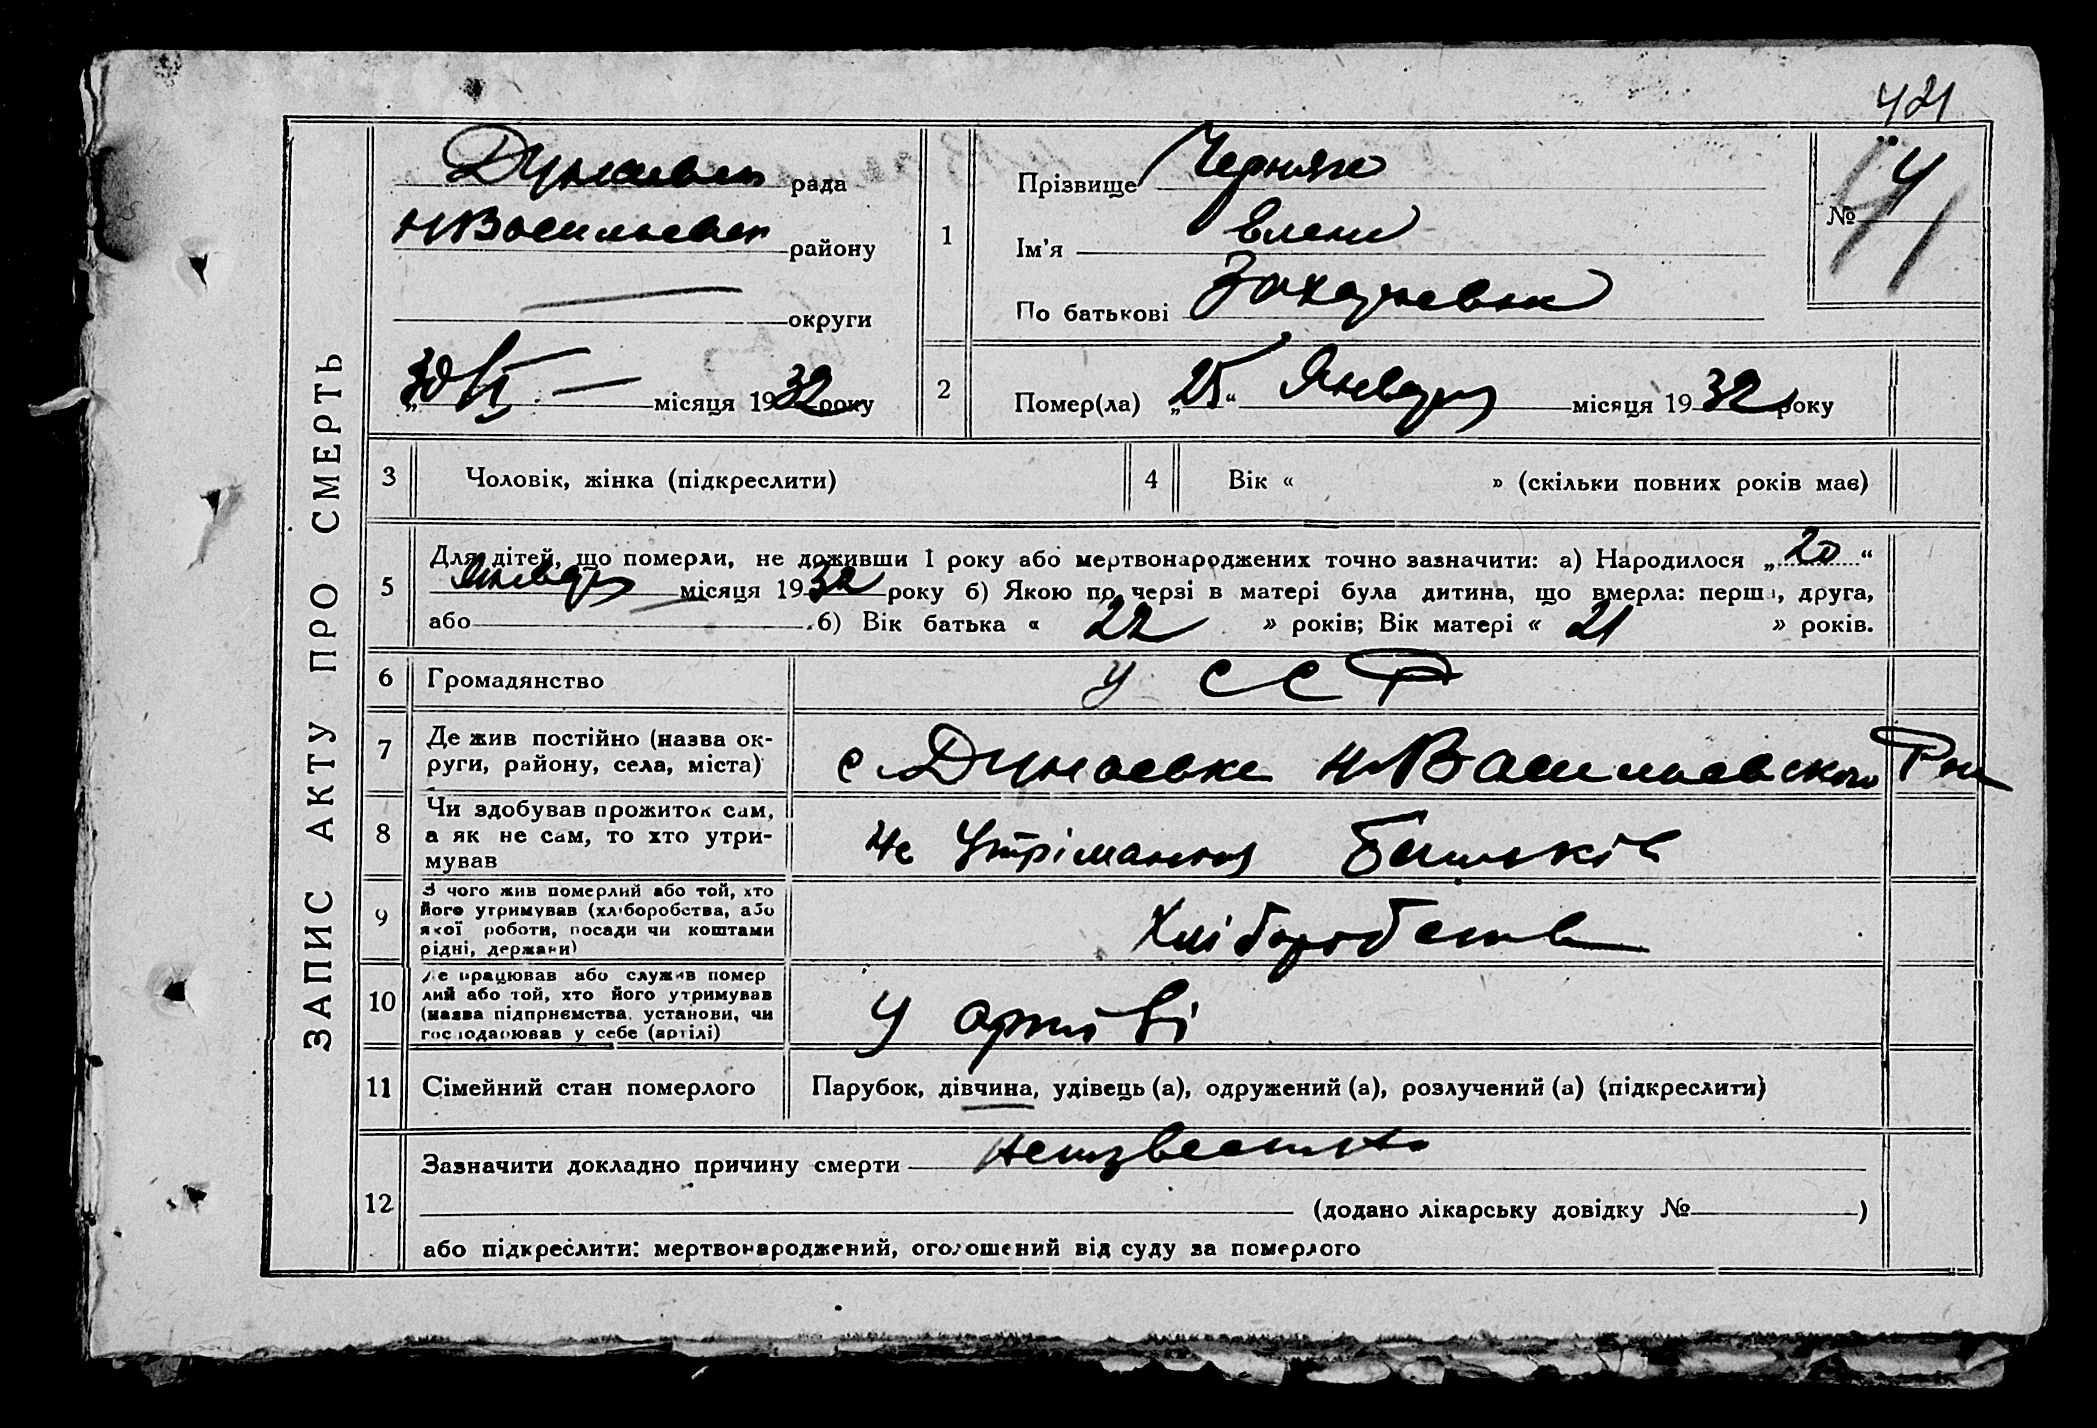 421
ЗАПИС АКТУ ПРО СМЕРТЬ
рада
НВасильевск району
округи
30/VI — місяця 1932 року
1
Прізвище Черняк
Ім'я Елена
По батькові Захаровна
№ 4
2
Помер(ла) „25“ Января місяця 1932 року
3 Чоловік, жінка (підкреслити)
4 Вік « » (скільки повних років має)
5 Для дітей, що померли, не доживши 1 року або мертвонароджених точно зазначити: а) Народилося „20“
Января місяця 1932 року б) Якою по черзі в матері була дитина, що вмерла: перша, друга,
або б) Вік батька « 22 » років; Вік матері « 21 » років.
6 Громадянство УССР
7 Де жив постійно (назва ок-
руги, району, села, міста)
с. Дунаевке Н Васильевского Рон
8 Чи здобував прожиток сам,
а як не сам, то хто утри-
мував
На Утріманню Батьків
9 З чого жив померлий або той, хто
його утримував (хліборобства, або
якої роботи, посади чи коштами
рідні, держави)
Хліборобств
10 Де працював або служив помер
лий або той, хто його утримував
(назва підприємства, установи, чи
господарював у себе (артілі)
У артілі
11 Сімейний стан померлого Парубок, дівчина, удівець (а), одружений (а), розлучений (а) (підкреслити)
12 Зазначити докладно причину смерти неизвестно
(додано лікарську довідку № )
або підкреслити: мертвонароджений, оголошений від суду за померлого